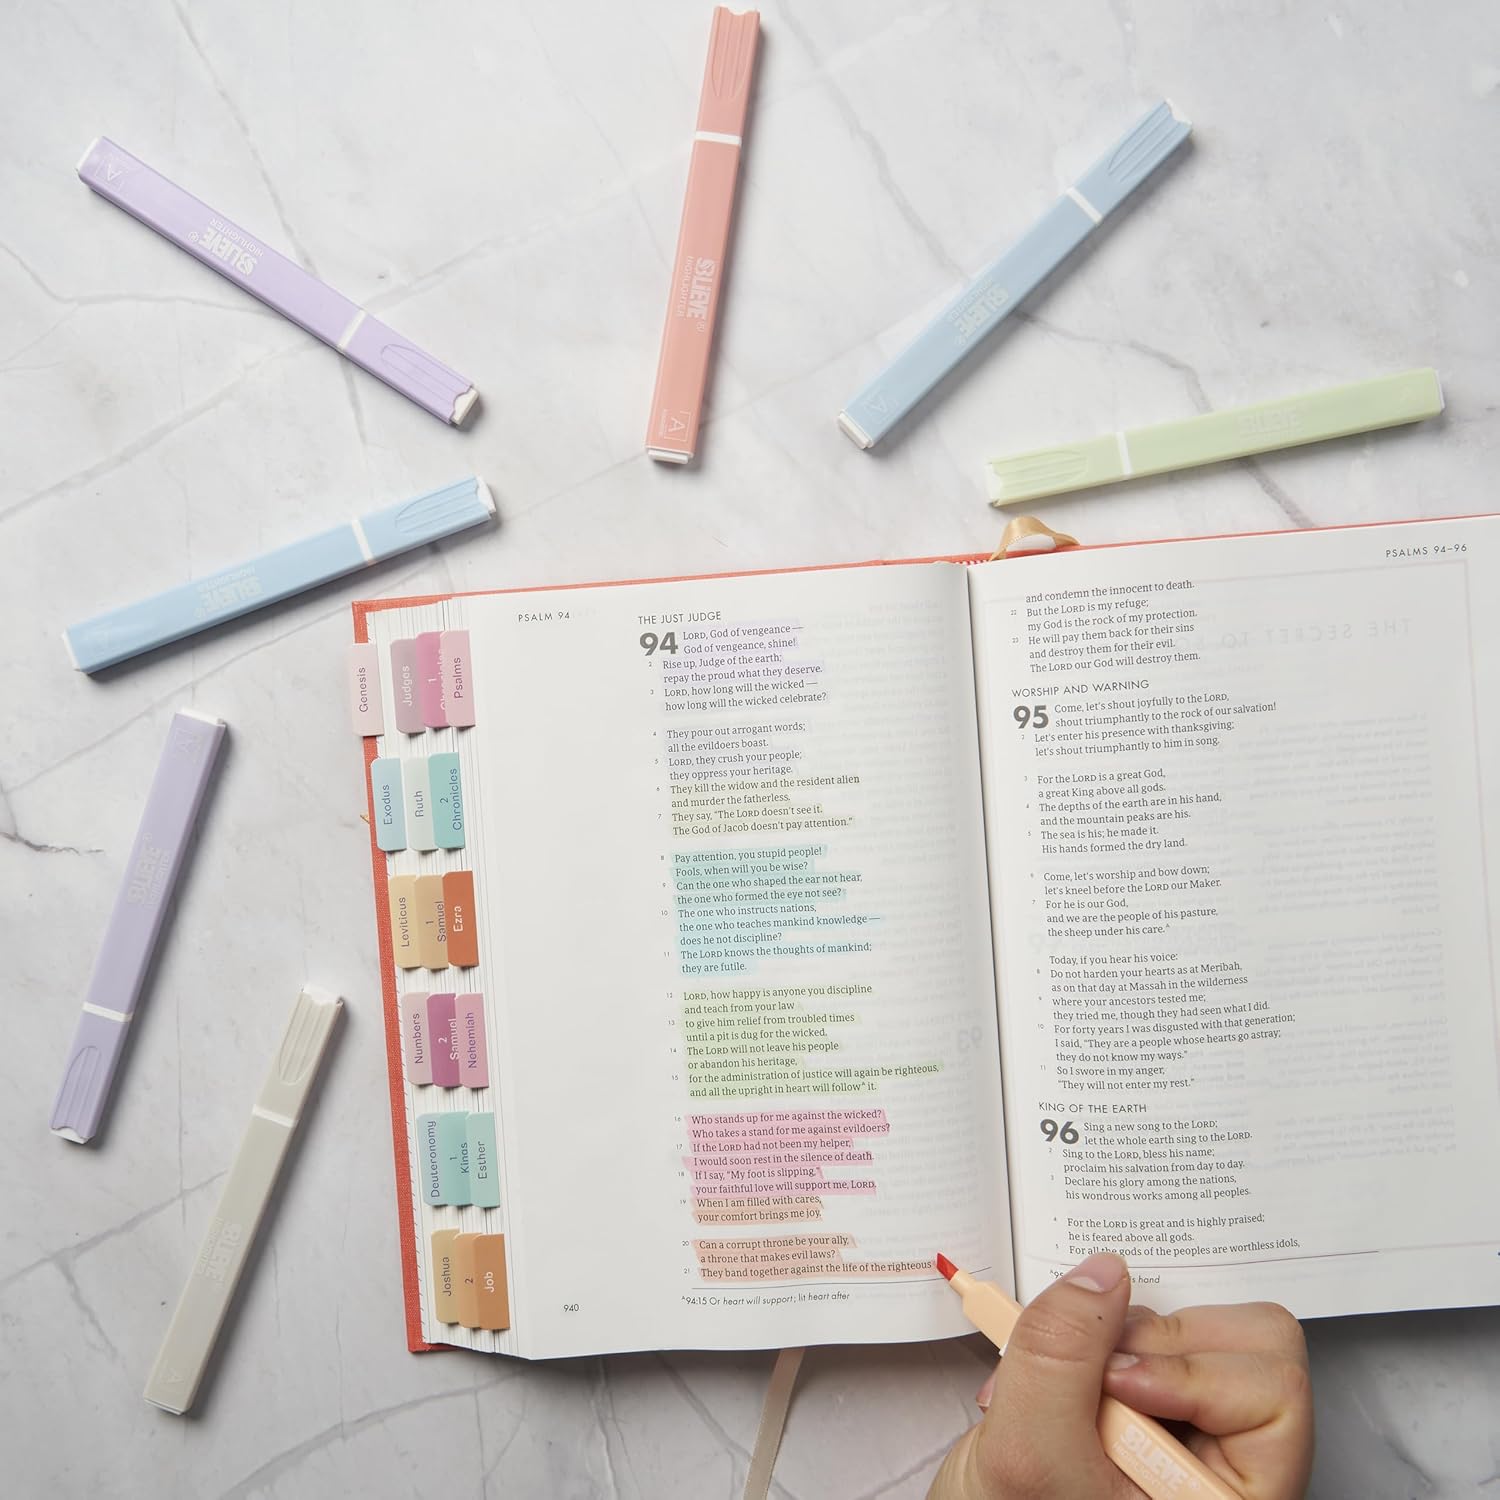 BLIEVE
HIGHLIGHTER
A
BLIEVE
HIGHLIGHTER
A
BLIEVE
HIGHLIGHTER
A
BLIEVE
BLIEVE
HIGHLIGHTER
A
BLIEVE
HIGHLIGHTER
A
BLIEVE
HIGHLIGHTER
A
BLIEVE
HIGHLIGHTER
Genesis
Judges
1
Chronicles
Psalms
Exodus
Ruth
2
Chronicles
Leviticus
1
Samuel
Ezra
Numbers
2
Samuel
Nehemiah
Deuteronomy
1
Kings
Esther
Joshua
2
Job
PSALM 94
THE JUST JUDGE
94 LORD, God of vengeance —
God of vengeance, shine!
2 Rise up, Judge of the earth;
repay the proud what they deserve.
3 LORD, how long will the wicked —
how long will the wicked celebrate?
4 They pour out arrogant words;
all the evildoers boast.
5 LORD, they crush your people;
they oppress your heritage.
6 They kill the widow and the resident alien
and murder the fatherless.
7 They say, "The LORD doesn't see it.
The God of Jacob doesn't pay attention."
8 Pay attention, you stupid people!
Fools, when will you be wise?
9 Can the one who shaped the ear not hear,
the one who formed the eye not see?
10 The one who instructs nations,
the one who teaches mankind knowledge —
does he not discipline?
11 The LORD knows the thoughts of mankind;
they are futile.
12 LORD, how happy is anyone you discipline
and teach from your law
13 to give him relief from troubled times
until a pit is dug for the wicked.
14 The LORD will not leave his people
or abandon his heritage,
15 for the administration of justice will again be righteous,
and all the upright in heart will follow^A it.
16 Who stands up for me against the wicked?
Who takes a stand for me against evildoers?
17 If the LORD had not been my helper,
I would soon rest in the silence of death.
18 If I say, "My foot is slipping,"
your faithful love will support me, LORD.
19 When I am filled with cares,
your comfort brings me joy.
20 Can a corrupt throne be your ally,
a throne that makes evil laws?
21 They band together against the life of the righteous
^A94:15 Or heart will support; lit heart after
940
PSALMS 94–96
and condemn the innocent to death.
22 But the LORD is my refuge;
my God is the rock of my protection.
23 He will pay them back for their sins
and destroy them for their evil.
The LORD our God will destroy them.
WORSHIP AND WARNING
95 Come, let's shout joyfully to the LORD,
shout triumphantly to the rock of our salvation!
2 Let's enter his presence with thanksgiving;
let's shout triumphantly to him in song.
3 For the LORD is a great God,
a great King above all gods.
4 The depths of the earth are in his hand,
and the mountain peaks are his.
5 The sea is his; he made it.
His hands formed the dry land.
6 Come, let's worship and bow down;
let's kneel before the LORD our Maker.
7 For he is our God,
and we are the people of his pasture,
the sheep under his care.^A
Today, if you hear his voice:
8 Do not harden your hearts as at Meribah,
as on that day at Massah in the wilderness
9 where your ancestors tested me;
they tried me, though they had seen what I did.
10 For forty years I was disgusted with that generation;
I said, "They are a people whose hearts go astray;
they do not know my ways."
11 So I swore in my anger,
"They will not enter my rest."
KING OF THE EARTH
96 Sing a new song to the LORD;
let the whole earth sing to the LORD.
2 Sing to the LORD, bless his name;
proclaim his salvation from day to day.
3 Declare his glory among the nations,
his wondrous works among all peoples.
4 For the LORD is great and is highly praised;
he is feared above all gods.
5 For all the gods of the peoples are worthless idols,
hand